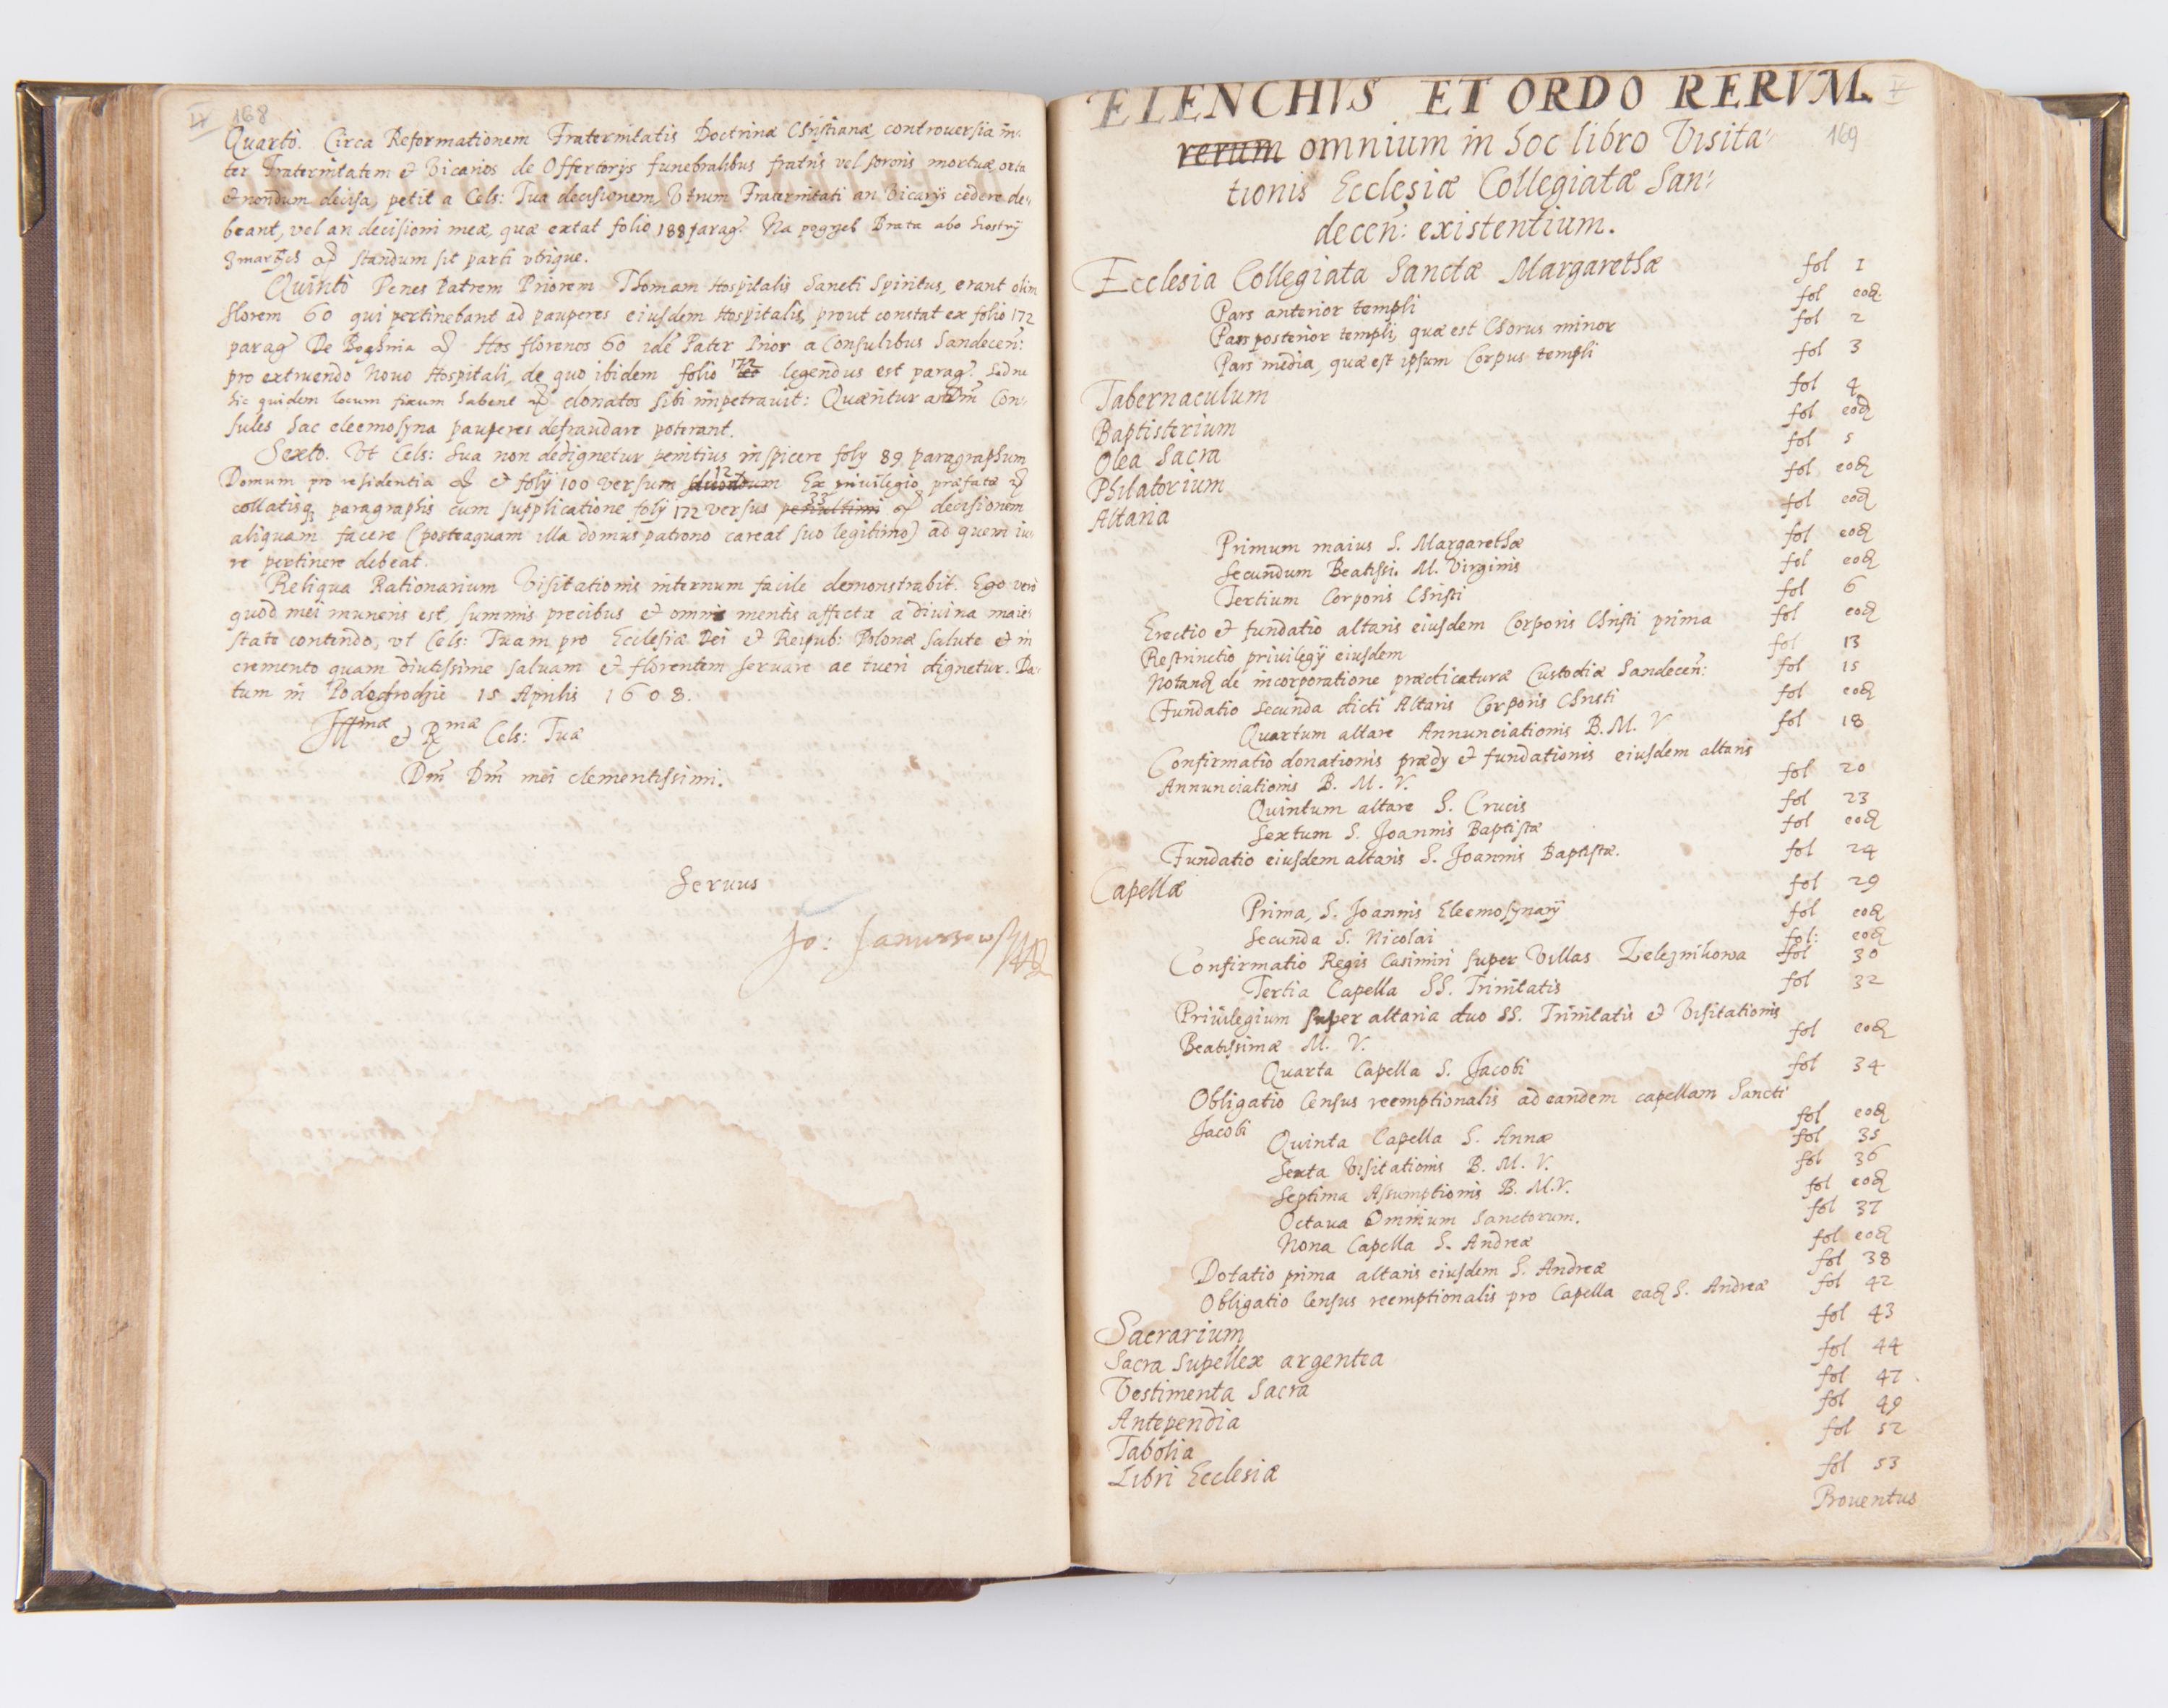 IV 168
Quarto. Circa Reformationem Fraternitatis Doctrinæ Christianæ, controuersia in:
ter Fraternitatem et Vicarios de Offertorijs funebralibus fratris vel sororis mortuæ orta
et nondum decisa, petit a Cels: Tua decisionem, Vtrum Fraternitati an Vicarijs cedere de:
beant, vel an decisioni meæ, quæ extat folio 188 parag. Na pogrzeb Brata abo Siostry
zmarłych standum sit parti vtrique.
Quinto Penes Patrem Priorem Thomam Hospitalis Sancti Spiritus, erant olim
floren 60 qui pertinebant ad pauperes eiusdem Hospitalis, prout constat ex folio 172
parag De Bochnia Hos florenos 60 idē Pater Prior a Consulibus Sandeceñ:
pro extruendo Nouo Hospitali, de quo ibidem folio 172 legendus est parag. Sed ne
hic quidem locum fixum habent donatos sibi impetrauit: Quæritur Con:
sules hac eleemosyna pauperes defraudare poterant.
Sexto. Vt Cels: Sua non dedignetur penitius inspicere folij 89 paragraphum
Domum pro residentia et folij 100 versum 12 Ex priuilegio præfatæ
collatisq paragraphis cum supplicatione folij 172 versus 33 penultimi decisionem
aliquam facere (posteaquam illa domus patrono careat suo legitimo) ad quem iu:
re pertinere debeat.
Reliqua Rationarium Visitationis internum facile demonstrabit. Ego vero
quod mei muneris est, summis precibus et omni mentis affectu a diuina maie:
state contendo, vt Cels: Tuam pro Ecclesiæ Dei et Reipub: Polonæ salute et in
cremento quam diutissime saluam et florentem seruare ac tueri dignetur. Da:
tum in Podegrodzie 15 Aprilis 1608.
Illmæ et Rmæ Cels: Tuæ
Dni Dni mei clementissimi.
Seruus
Jo: Januszowski
V
169
ELENCHVS ET ORDO RERVM.
rerum omnium in hoc libro Visita:
tionis Ecclesiæ Collegiatæ San:
deceñ: existentium.
Ecclesia Collegiata Sanctæ Margarethæ fol 1
Pars anterior templi fol eod.
Pars posterior templi, quæ est Chorus minor fol 2
Pars media, quæ est ipsum Corpus templi fol 3
Tabernaculum fol 4
Baptisterium fol eod
Olea Sacra fol 5
Philatorium fol eod
Altaria fol eod
Primum maius S. Margarethæ fol eod
Secundum Beatissi. M. Virginis fol eod
Tertium Corporis Christi fol 6
Erectio et fundatio altaris eiusdem Corporis Christi prima fol eod
Restrinctio priuilegij eiusdem fol 13
Notand de incorporatione prædicaturæ Custodiæ Sandeceñ: fol 15
Fundatio Secunda dicti Altaris Corporis Christi fol eod
Quartum altare Annunciationis B. M. V fol 18
Confirmatio donationis prædij et fundationis eiusdem altaris
Annunciationis B. M. V. fol 20
Quintum altare S. Crucis fol 23
Sextum S. Joannis Baptistæ fol eod
Fundatio eiusdem altaris S. Joannis Baptistæ. fol 24
Capellæ fol 29
Prima, S. Joannis Eleemosynarij fol eod
Secunda S. Nicolai fol: eod
Confirmatio Regis Casimiri super Villas Zeleznikowa fol 30
Tertia Capella SS. Trinitatis fol 32
Priuilegium super altaria duo SS. Trinitatis et Visitationis
Beatissimæ M. V. fol eod
Quarta Capella S. Jacobi fol 34
Obligatio Census reemptionalis ad eandem capellam Sancti
Jacobi fol eod
Quinta Capella S. Annæ fol 35
Sexta Visitationis B. M. V. fol 36
Septima Assumptionis B. M. V. fol eod
Octaua Omnium Sanctorum. fol 37
Nona Capella S. Andreæ fol eod
Dotatio prima altaris eiusdem S. Andreæ fol 38
Obligatio Census reemptionalis pro Capella ead S. Andreæ fol 42
Sacrarium fol 43
Sacra Supellex argentea fol 44
Vestimenta Sacra fol 47
Antependia fol 49
Tabolia fol 52
Libri Ecclesiæ fol 53
Prouentus